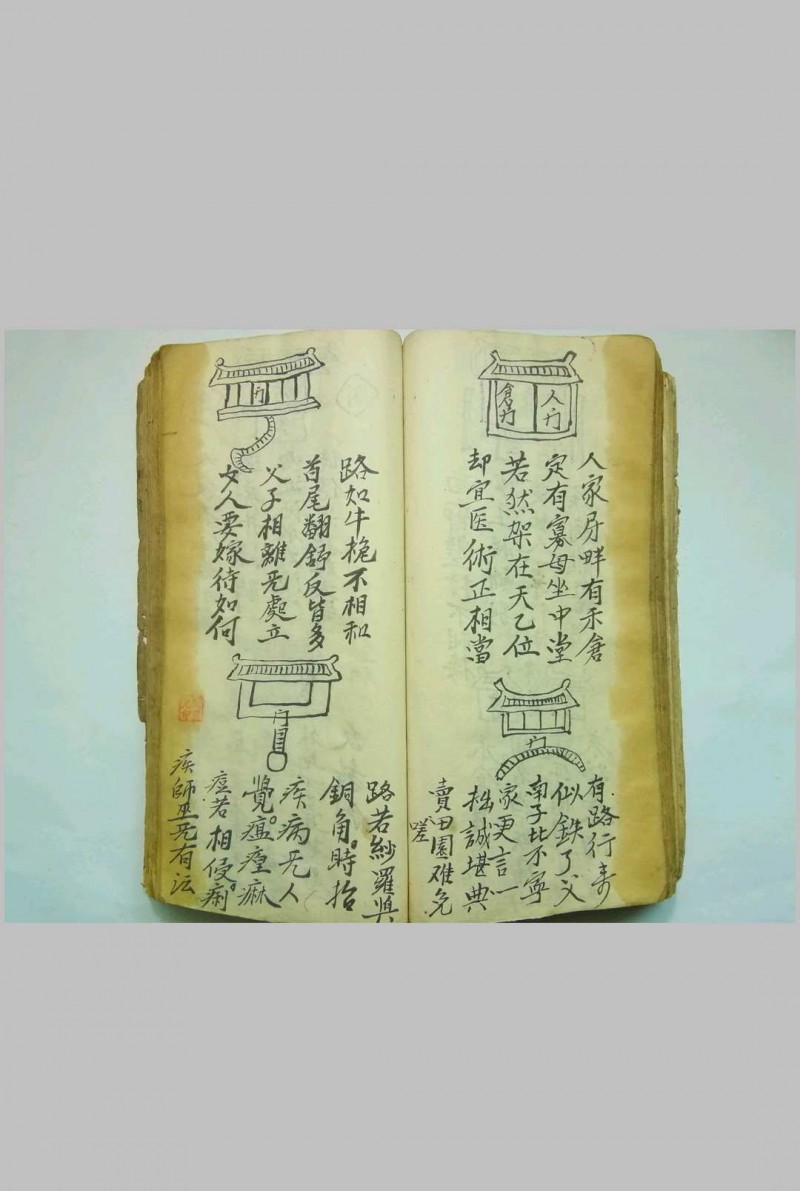 人门
倉门
人家房畔有禾倉
定有寡母坐中堂
若然架在天乙位
却宜医術正相當
门
有路行来
似鉄了父
南子比不寧
家更言一
拙誠堪典
賣田園难免
嗟
门
路如牛桅不相和
首尾翻舒反皆多
父子相離无處立
女人要嫁待如何
门
路若紗羅與
銅角。時抬
疾病无人
覺。瘟瘟麻
痘若相侵。痢
疾師巫无有法